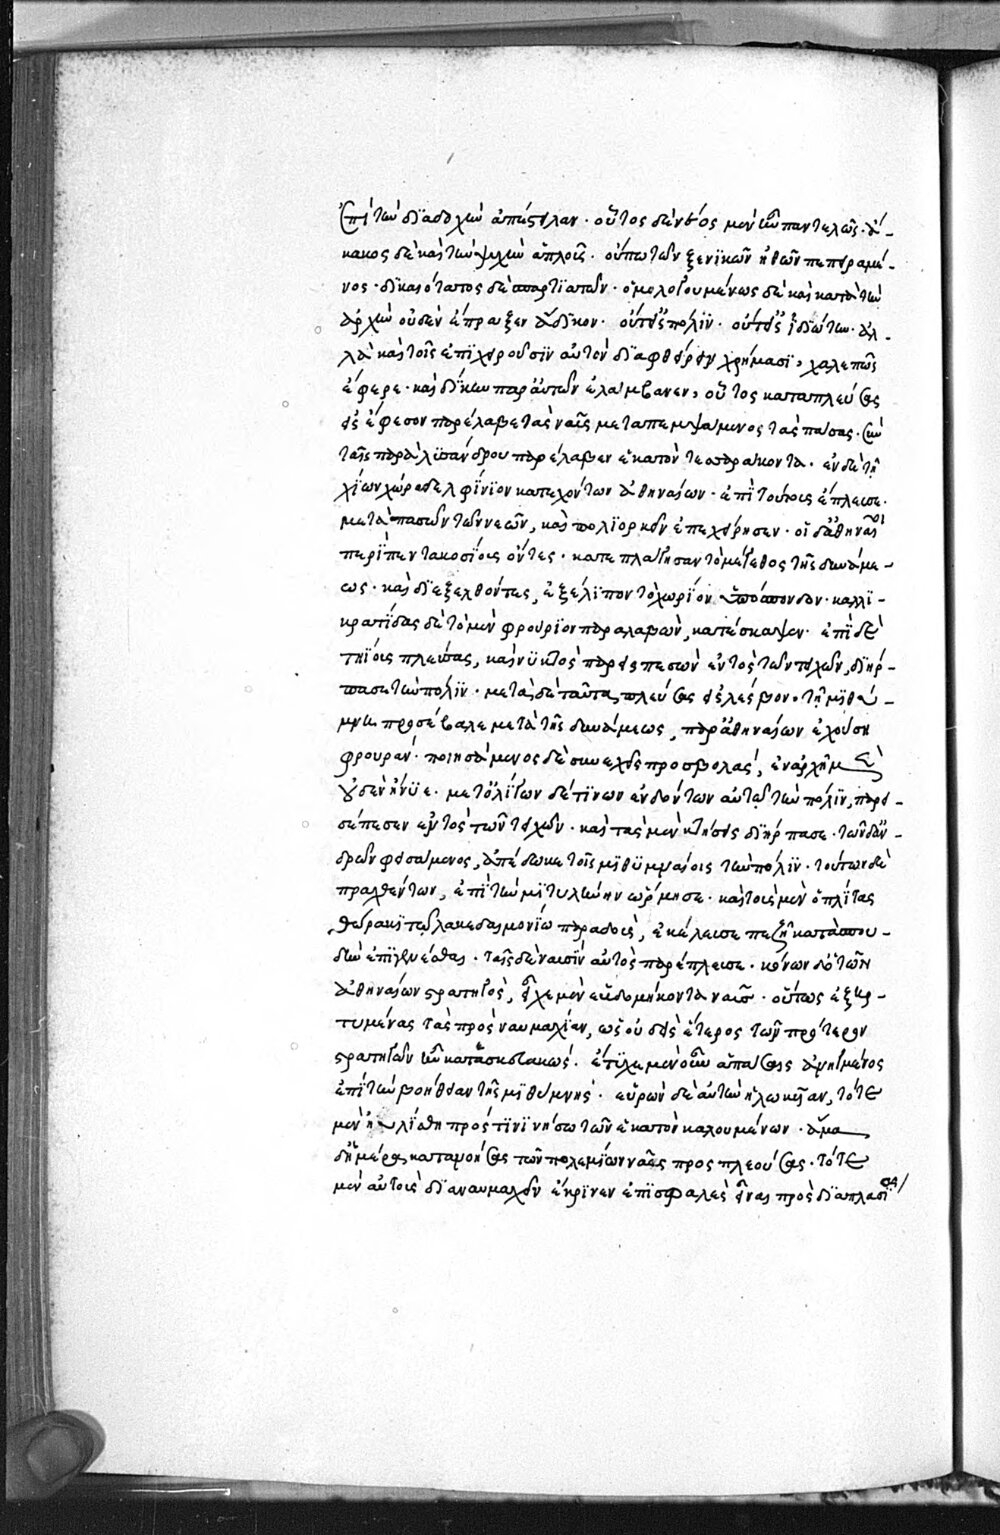 ἐπὶ τὴν διαδοχὴν ἀπέστειλαν· οὗτος δὲ νέος μὲν ἦν παντελῶς· ἄ-
κακος δὲ καὶ τὴν ψυχὴν ἁπλοῦς· οὔπω τῶν ξενικῶν ἠθῶν πεπειραμέ-
νος· δικαιότατος δὲ σπαρτιατῶν· ὁμολογουμένως δὲ καὶ κατὰ τὴν
ἀρχὴν οὐδὲν ἔπραξεν ἄδικον· οὔτ' εἰς πόλιν· οὔτ' εἰς ἰδιώτην· ἀλ-
λὰ καὶ τοῖς ἐπιχειροῦσιν αὐτὸν διαφθείρειν χρήμασι, χαλεπῶς
ἔφερε· καὶ δίκην παρ' αὐτῶν ἐλάμβανεν, οὗτος καταπλεύσας
εἰς ἔφεσον παρέλαβε τὰς ναῦς μεταπεμψάμενος τὰς πάσας· σὺν
ταῖς παρὰ λυσάνδρου παρέλαβεν ἑκατὸν τεσσαράκοντα· ἐν δὲ τῇ
χίων χώρᾳ δελφίνιον κατεχόντων ἀθηναίων· ἐπὶ τούτοις ἔπλευσε·
μετὰ πασῶν τῶν νεῶν, καὶ πολιορκεῖν ἐπεχείρησεν· οἱ δ' ἀθηναῖοι
περὶ πεντακοσίοις ὄντες· κατεπλάγησαν τὸ μέγεθος τῆς δυνάμε-
ως· καὶ διεξελθόντες, ἐξέλιπον τὸ χωρίον ὑπόσπονδον· καλλι-
κρατίδας δὲ τὸ μὲν φρούριον παραλαβὼν, κατέσκαψεν· ἐπὶ δὲ
τηίοις πλεύσας, καὶ νυκτὸς παρεισπεσὼν ἐντὸς τῶν τειχῶν, διήρ-
πασε τὴν πόλιν· μετὰ δὲ ταῦτα πλεύσας εἰς λέσβον· τῇ μιθύ-
μνῃ προσέβαλε μετὰ τῆς δυνάμεως, παρ' ἀθηναίων ἐχούσῃ
φρουράν· ποιησάμενος δὲ συνεχεῖς προσβολὰς, ἐν ἀρχῇ μὲν
οὐδὲν ἤνυε· μετ' ὀλίγων δέ τινων ἐνδόντων αὐτῷ τὴν πόλιν, παρει-
σέπεσεν ἐντὸς τῶν τειχῶν· καὶ τὰς μὲν κτήσεις διήρπασε· τῶν δ' ἀν-
δρῶν φεισάμενος, ἀπέδωκε τοῖς μιθυμναίοις τὴν πόλιν· τούτων δὲ
πραχθέντων, ἐπὶ τὴν μιτυλήνην ὥρμησε· καὶ τοὺς μὲν ὁπλίτας
θώρακι τῷ λακεδαιμονίῳ παραδοὺς, ἐκέλευσε πεζῇ κατὰ σπου-
δὴν ἐπιγενέσθαι· ταῖς δὲ ναυσὶν αὐτὸς παρέπλευσε· κόνων δ' ὁ τῶν
ἀθηναίων στρατηγὸς, εἶχε μὲν ἑβδομήκοντα ναῦς· οὕτως ἐξηρ-
τυμένας τὰς πρὸς ναυμαχίαν, ὡς οὐδεὶς ἕτερος τῶν πρότερον
στρατηγῶν ἦν κατασκευακώς. ἔτυχε μὲν οὖν ἁπάσαις ἀνηγμένος
ἐπὶ τὴν βοήθειαν τῆς μιθύμνης· εὑρὼν δὲ αὐτὴν ἡλωκυῖαν, τότε
μὲν ηὐλίσθη πρός τινι νήσῳ τῶν ἑκατὸν καλουμένων· ἅμα
δ' ἡμέρᾳ κατανοήσας τῶν πολεμίων ναῦς προσπλεούσας· τότε
μὲν αὐτοῖς διαναυμαχεῖν ἔκρινεν ἐπισφαλὲς εἶναι πρὸς διπλασί